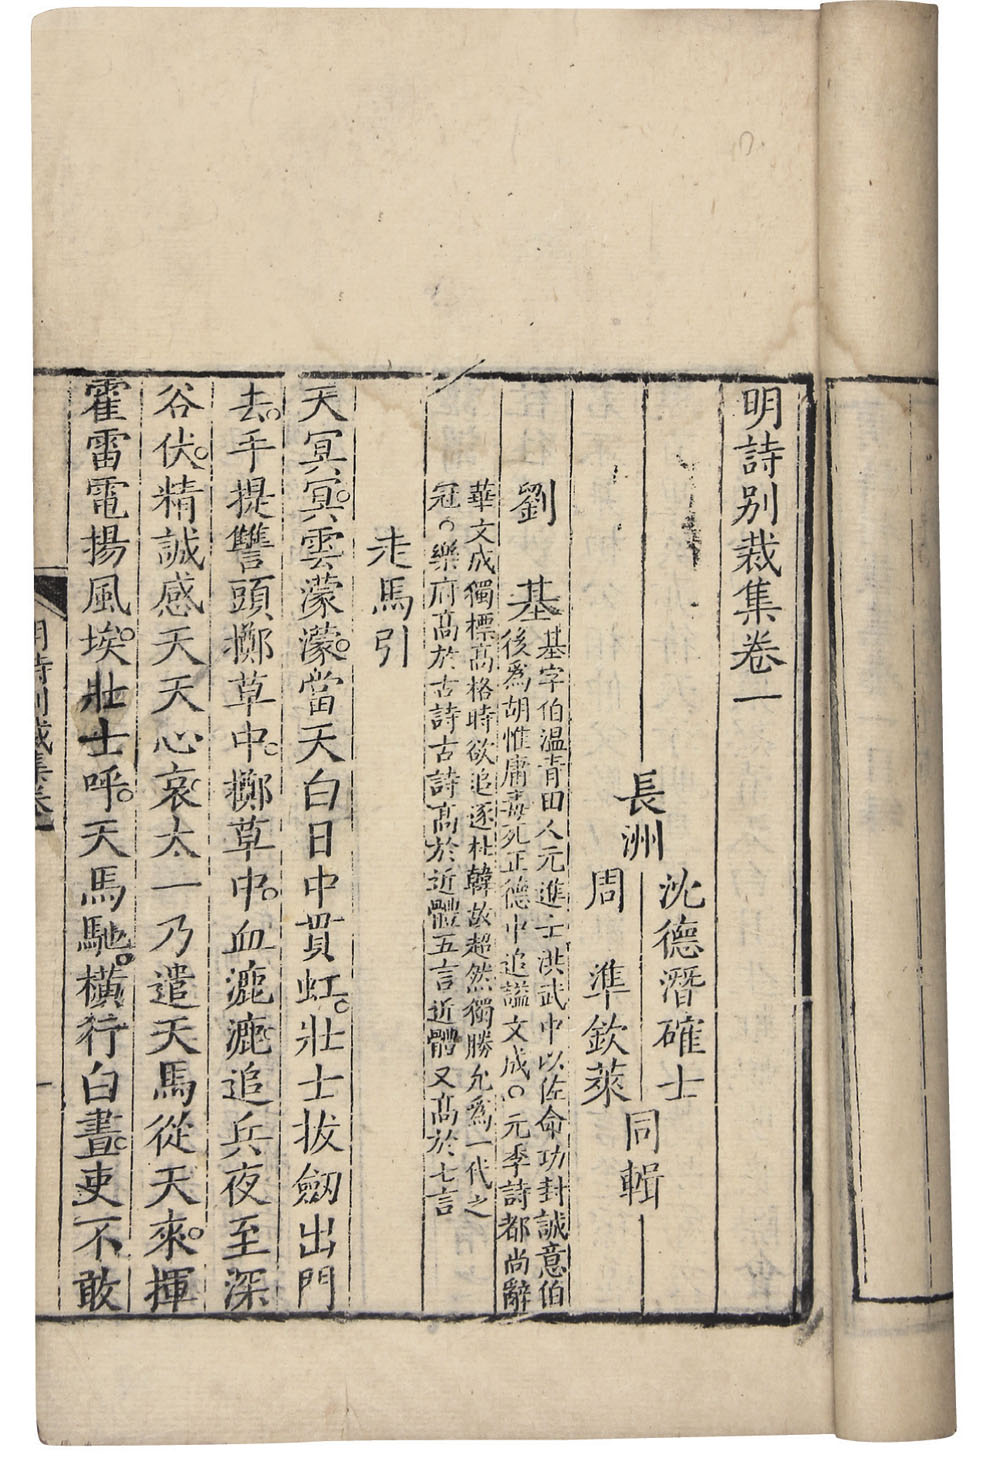 明詩別裁集卷一
長洲
沈德潛確士
周準欽萊
同輯
劉基
基字伯溫青田人元進士洪武中以佐命功封誠意伯
後爲胡惟庸毒死正德中追謚文成○元季詩都尚辭
華文成獨標高格時欲追逐杜韓故超然獨勝允爲一代之
冠○樂府高於古詩古詩高於近體五言近體又高於七言
走馬引
天冥冥○雲濛濛○當天白日中貫虹○壯士拔劒出門
去○手提讐頭擲草中○擲草中○血漉漉追兵夜至深
谷伏○精誠感天天心哀太一乃遣天馬從天來○揮
霍雷電揚風埃○壯士呼○天馬馳○橫行白晝○吏不敢
明詩別裁集卷一
一